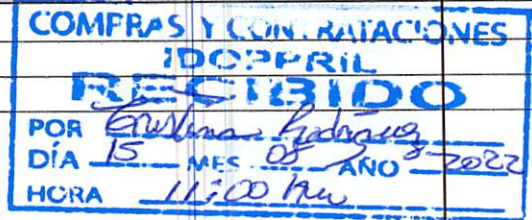 COMPRAS Y CONTRATACIONES
IDOPPRIL
RECIBIDO
POR Cristina Rodríguez
DÍA 15 MES 08 AÑO 2022
HORA 11:00